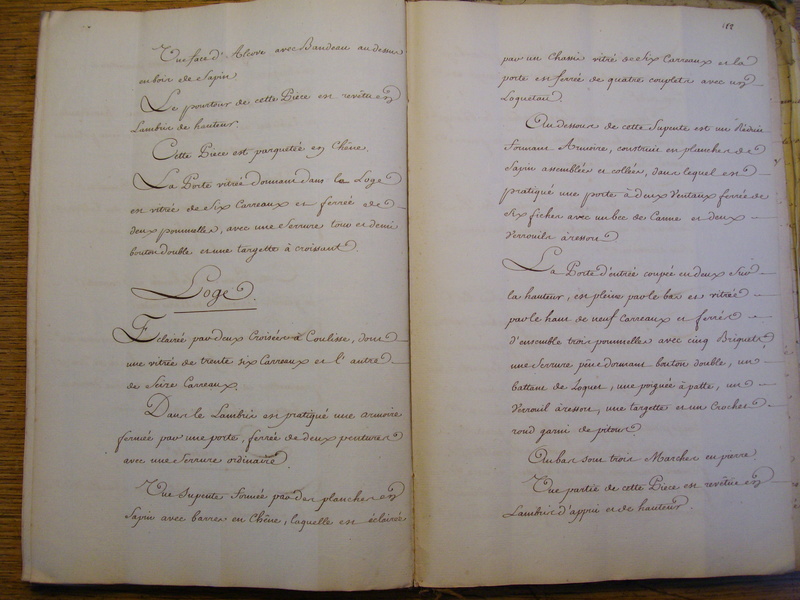 Une face d'Alcove avec Bandeau au dessus
en bois de Sapin
Le pourtour de cette Piece est revêtu en
Lambris de hauteur.
Cette Piece est parquetée en Chêne.
La Porte vitrée donnant dans la Loge
est vitrée de Six Carreaux et ferrée de
deux pommelles, avec une Serrure tour et demi
bouton double et une targette à croissant.
Loge.
Eclairée par deux Croisées à Coulisse, dont
une vitrée de trente six Carreaux et l'autre
de Seize Carreaux.
Dans le Lambris est pratiqué une armoire
fermée par une porte, ferrée de deux pentures
avec une Serrure ordinaire.
Une Supente formée par des planches en
Sapin avec barres en Chêne, laquelle est éclairée
par un Chassis vitré de Six Carreaux et la
porte est ferrée de quatre couplets avec un
Loqueteau.
Au dessous de cette Supente est un Réduit
formant Armoire, construit en planches de
Sapin assemblées et collées, dans lequel est
pratiqué une porte à deux Ventaux ferrée de
Six fiches avec un bec de Canne et deux
Verrouils à ressort
La Porte d'entrée coupée en deux Sur
la hauteur, est pleine par le bas et vitrée
par le haut de neuf Carreaux et ferrée
d'ensemble trois pommelles avec cinq Briquets
une Serrure pene dormant bouton double, un
battant de Loquet, une poignée à patte, un
Verrouil à ressort, une targette et un Crochet
rond garni de pitons.
Au bas sont trois Marches en pierre
Une partie de cette Piece est revêtue en
Lambris d'appui et de hauteur.